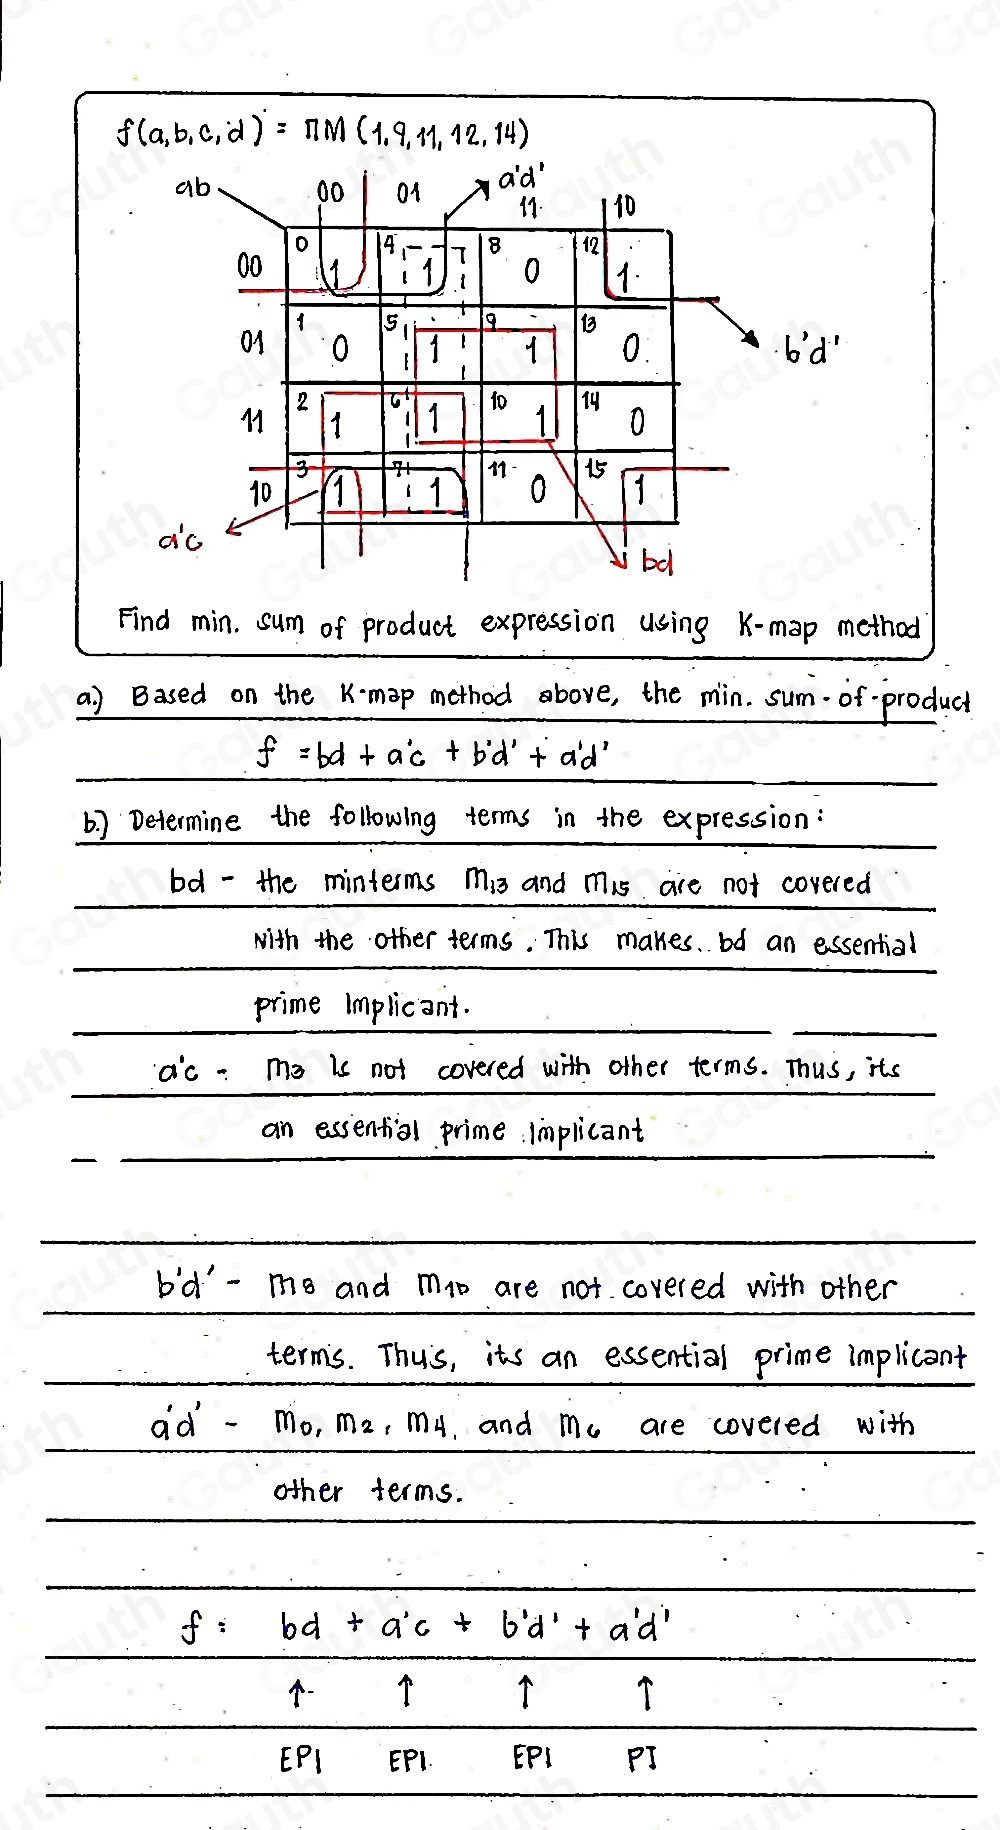 f(a,b,c,d) = ΠM (1,9,11,12,14)
ab 00 01 a'd' 11 10
00 0 1 4 1 8 0 12 1
01 1 0 5 1 9 1 13 0 b'd'
11 2 1 6 1 10 1 14 0
10 3 1 7 1 11 0 15 1
a'c bd
Find min. sum of product expression using K-map method
a.) Based on the K-map method above, the min. sum-of-product
f = bd + a'c + b'd' + a'd'
b.) Determine the following terms in the expression:
bd - the minterms m13 and m15 are not covered
with the other terms. This makes bd an essential
prime implicant.
a'c - m3 is not covered with other terms. Thus, its
an essential prime implicant
b'd' - m8 and m10 are not covered with other
terms. Thus, its an essential prime implicant
a'd' - m0, m2, m4, and m6 are covered with
other terms.
f = bd + a'c + b'd' + a'd'
↑ ↑ ↑ ↑
EPI EPI EPI PI